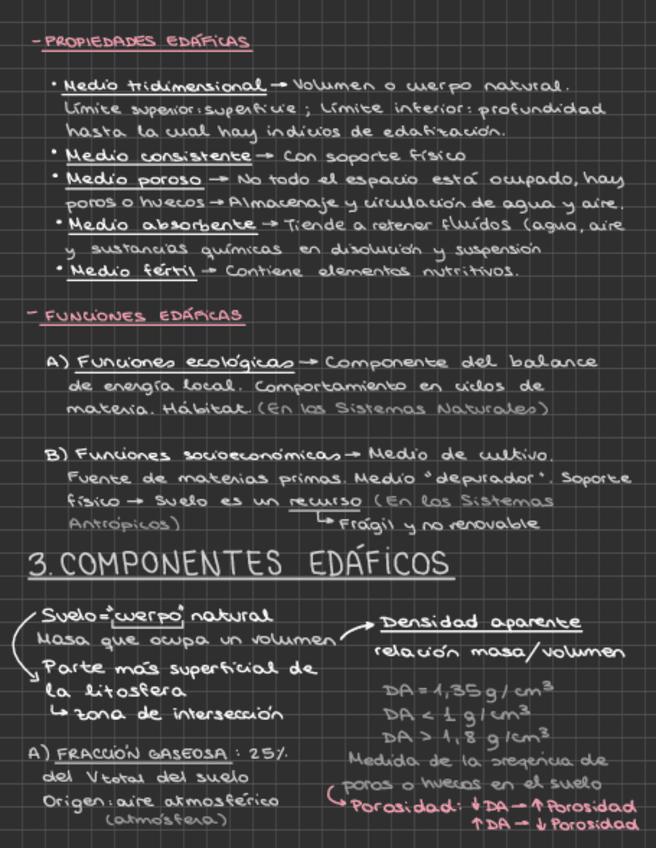 - PROPIEDADES EDÁFICAS
• Medio tridimensional → Volumen o cuerpo natural.
Límite superior: superficie ; Límite inferior: profundidad
hasta la cual hay indicios de edafización.
• Medio consistente → Con soporte físico
• Medio poroso → No todo el espacio está ocupado, hay
poros o huecos → Almacenaje y circulación de agua y aire.
• Medio absorbente → Tiende a retener fluídos (agua, aire
y sustancias químicas en disolución y suspensión
• Medio fértil → Contiene elementos nutritivos.
- FUNCIONES EDÁFICAS
A) Funciones ecológicas → Componente del balance
de energía local. Comportamiento en ciclos de
materia. Hábitat. (En los Sistemas Naturales)
B) Funciones socioeconómicas → Medio de cultivo.
Fuente de materias primas. Medio "depurador". Soporte
físico → Suelo es un recurso (En los Sistemas
Antrópicos) ↳ Frágil y no renovable
3. COMPONENTES EDÁFICOS
Suelo = "cuerpo" natural
Masa que ocupa un volumen
Parte más superficial de
la litosfera
↳ zona de intersección
A) FRACCIÓN GASEOSA : 25%
del Vtotal del suelo
Origen: aire atmosférico
(atmósfera)
→ Densidad aparente
relación masa/volumen
DA = 1,35 g/cm³
DA < 1 g/cm³
DA > 1,8 g/cm³
Medida de la presencia de
poros o huecos en el suelo
↳ Porosidad: ↓DA → ↑Porosidad
↑DA → ↓Porosidad